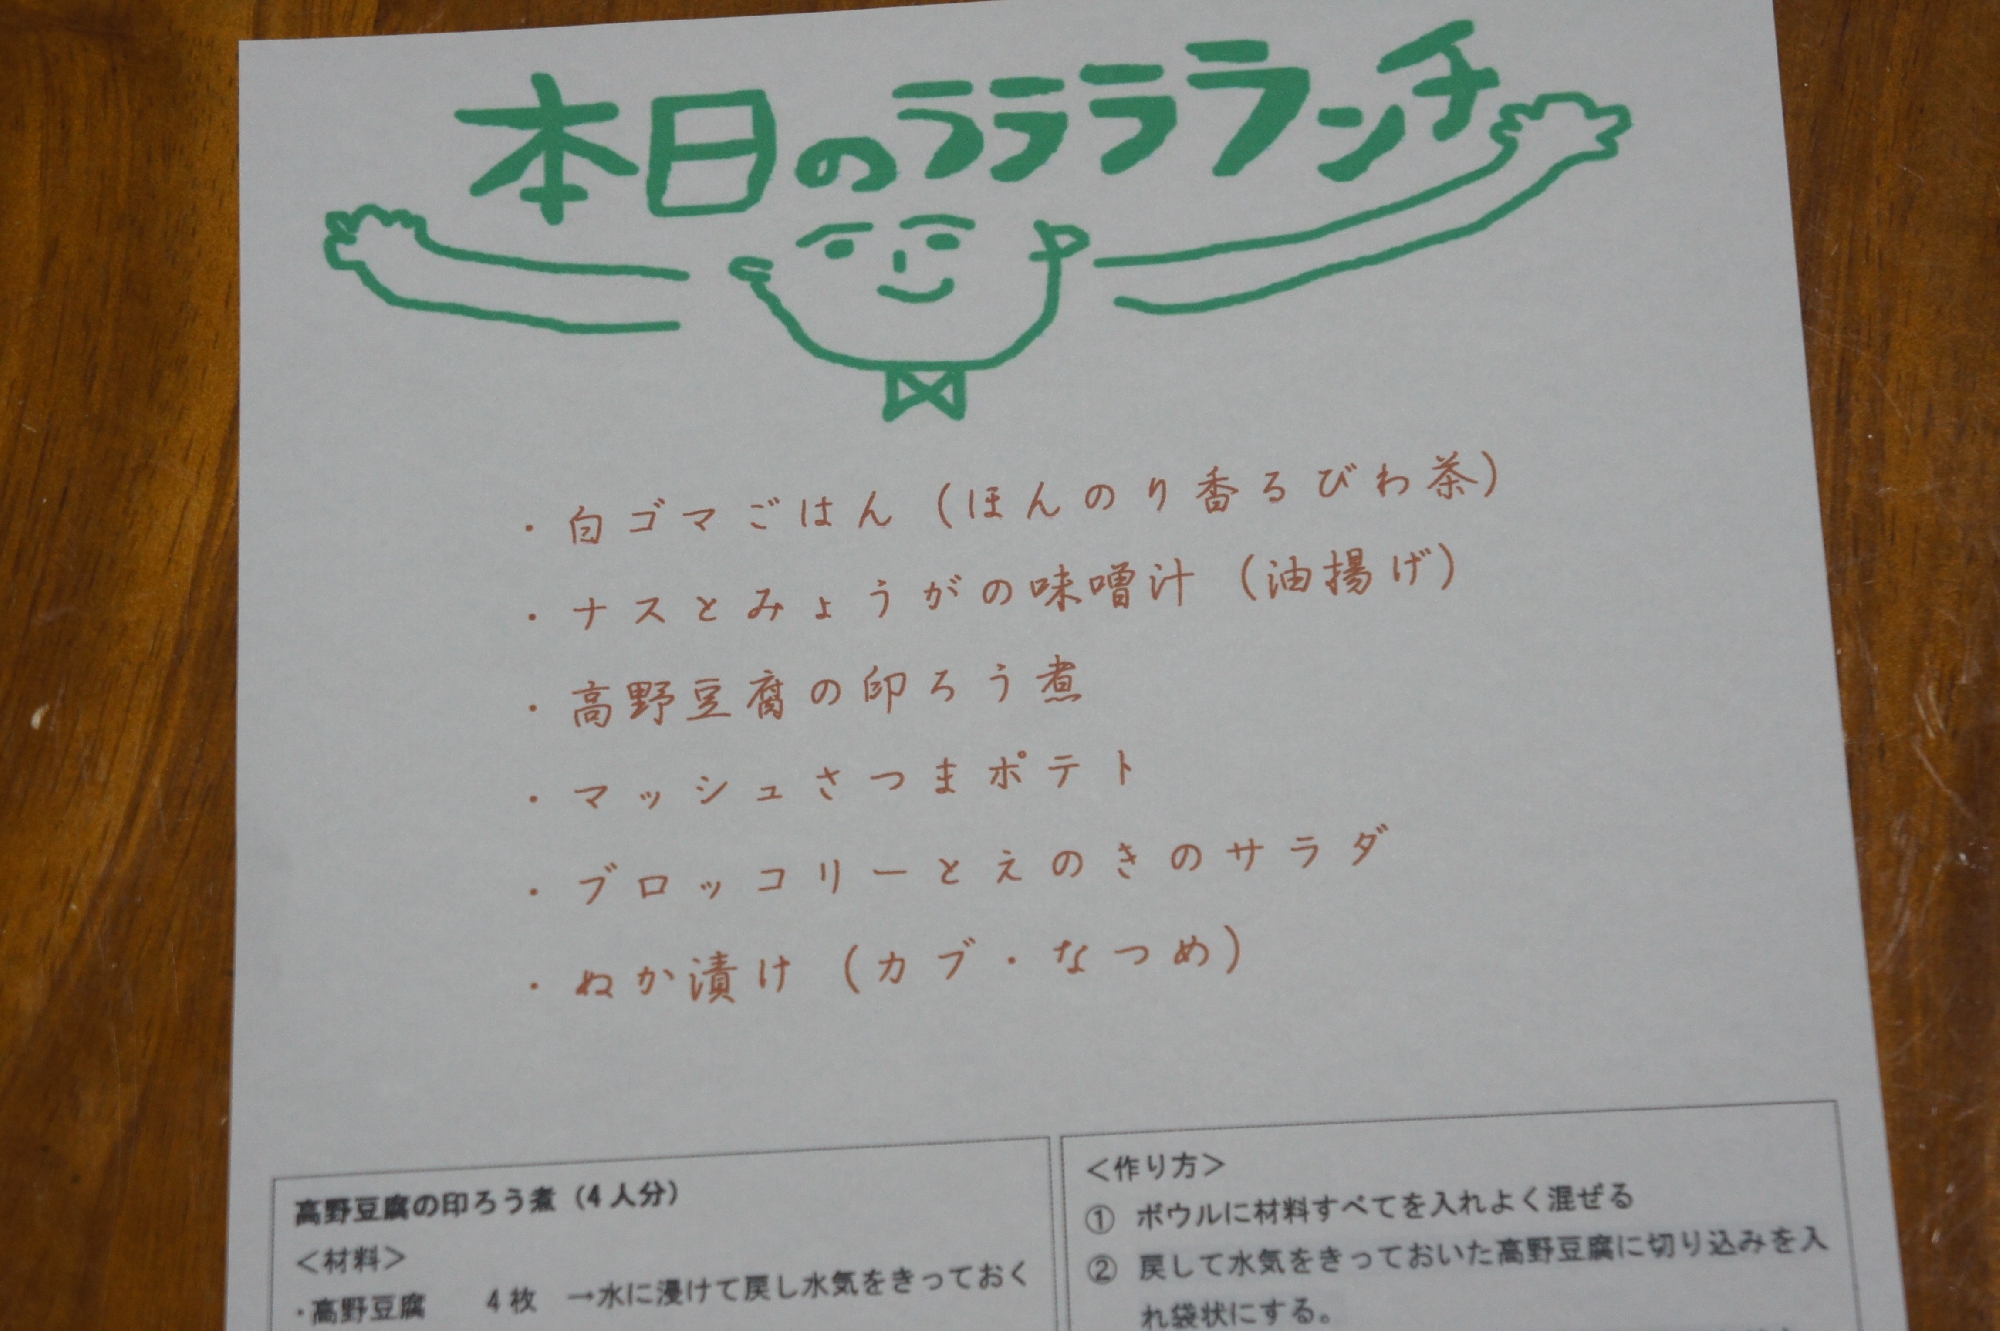 本日のラララランチ
・白ゴマごはん（ほんのり香るびわ茶）
・ナスとみょうがの味噌汁（油揚げ）
・高野豆腐の印ろう煮
・マッシュさつまポテト
・ブロッコリーとえのきのサラダ
・ぬか漬け（カブ・なつめ）
高野豆腐の印ろう煮（4人分）
＜材料＞
・高野豆腐　4枚　→水に浸けて戻し水気をきっておく
＜作り方＞
① ボウルに材料すべてを入れよく混ぜる
② 戻して水気をきっておいた高野豆腐に切り込みを入
れ袋状にする。